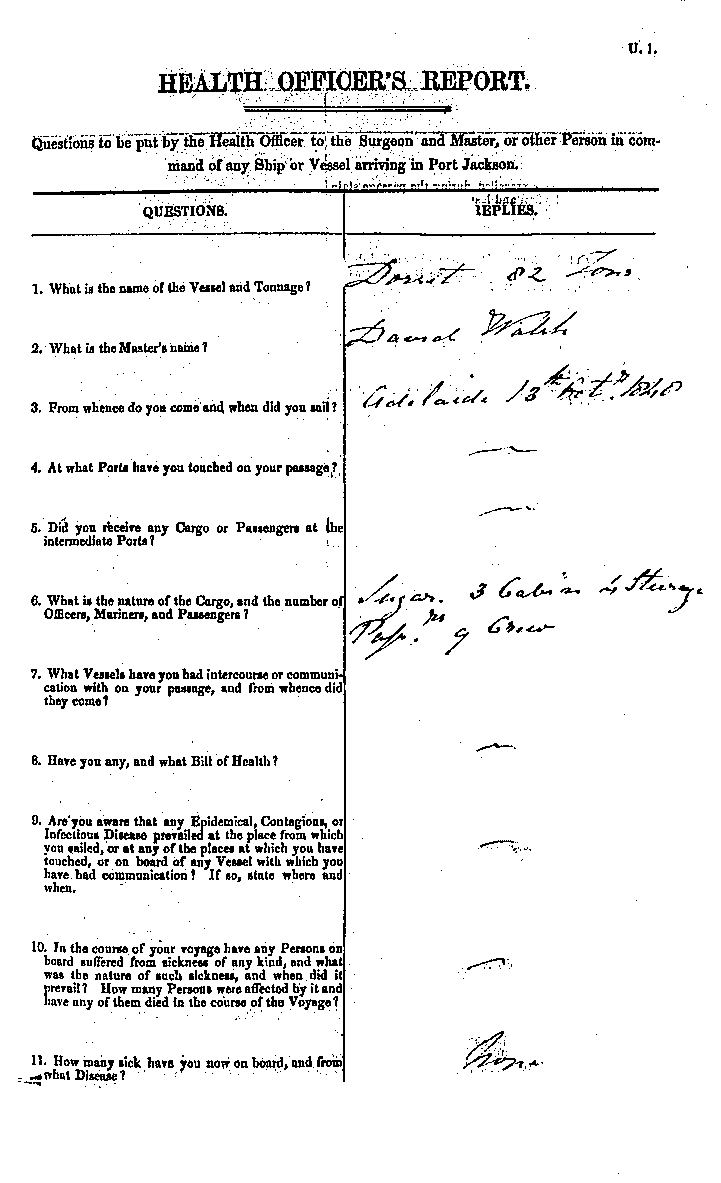 U. 1.
HEALTH OFFICER'S REPORT.
Questions to be put by the Health Officer to the Surgeon and Master, or other Person in com-
mand of any Ship or Vessel arriving in Port Jackson.
QUESTIONS.
REPLIES.
1. What is the name of the Vessel and Tonnage?
Dorset 82 Tons
2. What is the Master's name?
David Walsh
3. From whence do you come and when did you sail?
Adelaide 13th 1840
4. At what Ports have you touched on your passage?
—
5. Did you receive any Cargo or Passengers at the
intermediate Ports?
—
6. What is the nature of the Cargo, and the number of
Officers, Mariners, and Passengers?
Sugar. 3 Cabin Steerage
Passrs 9 Crew
7. What Vessels have you had intercourse or communi-
cation with on your passage, and from whence did
they come?
8. Have you any, and what Bill of Health?
—
9. Are you aware that any Epidemical, Contagious, or
Infectious Disease prevailed at the place from which
you sailed, or at any of the places at which you have
touched, or on board of any Vessel with which you
have had communication? If so, state where and
when.
—
10. In the course of your voyage have any Persons on
board suffered from sickness of any kind, and what
was the nature of such sickness, and when did it
prevail? How many Persons were affected by it and
have any of them died in the course of the Voyage?
—
11. How many sick have you now on board, and from
what Disease?
None